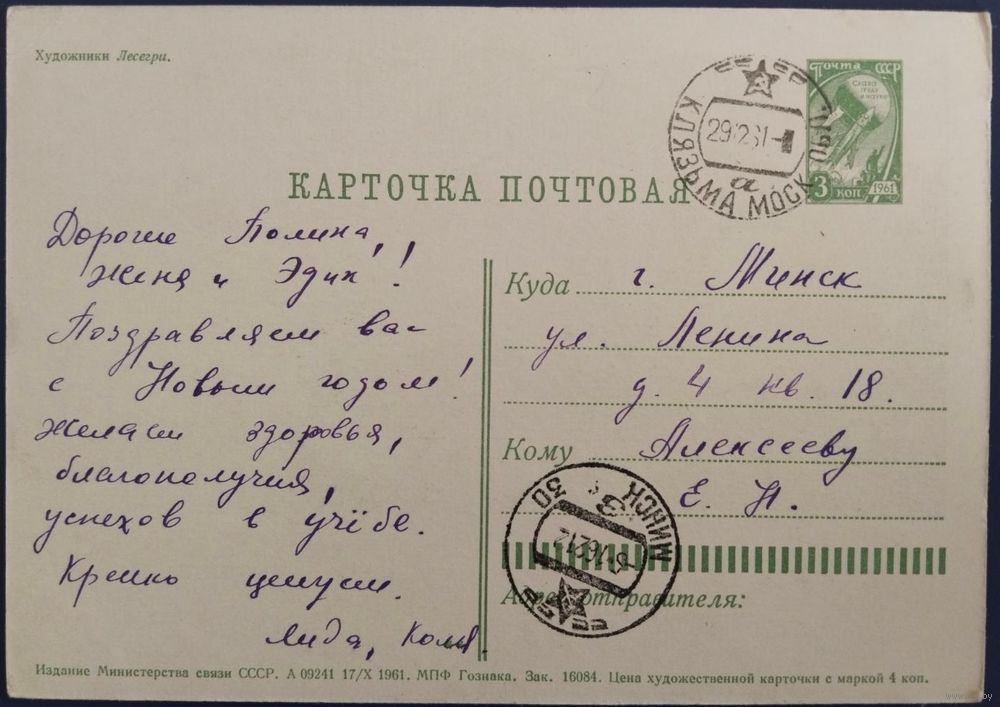 Художники Лесегри.
Почта СССР
СЛАВА
ТРУДУ
И НАУКЕ
3 КОП 1961
СССР
КЛЯЗЬМА МОСК. ОБЛ.
29 12 61
а
КАРТОЧКА ПОЧТОВАЯ
Дорогие Полина,
Женя и Эдик!
Поздравляем вас
с Новым годом!
Желаем здоровья,
благополучия,
успехов в учёбе.
Крепко целуем.
Лида, Коля.
Куда г. Минск
ул. Ленина
д. 4 кв. 18.
Кому Алексееву
Е. Н.
МИНСК 30
СССР
Адрес отправителя:
Издание Министерства связи СССР. А 09241 17/X 1961. МПФ Гознака. Зак. 16084. Цена художественной карточки с маркой 4 коп.